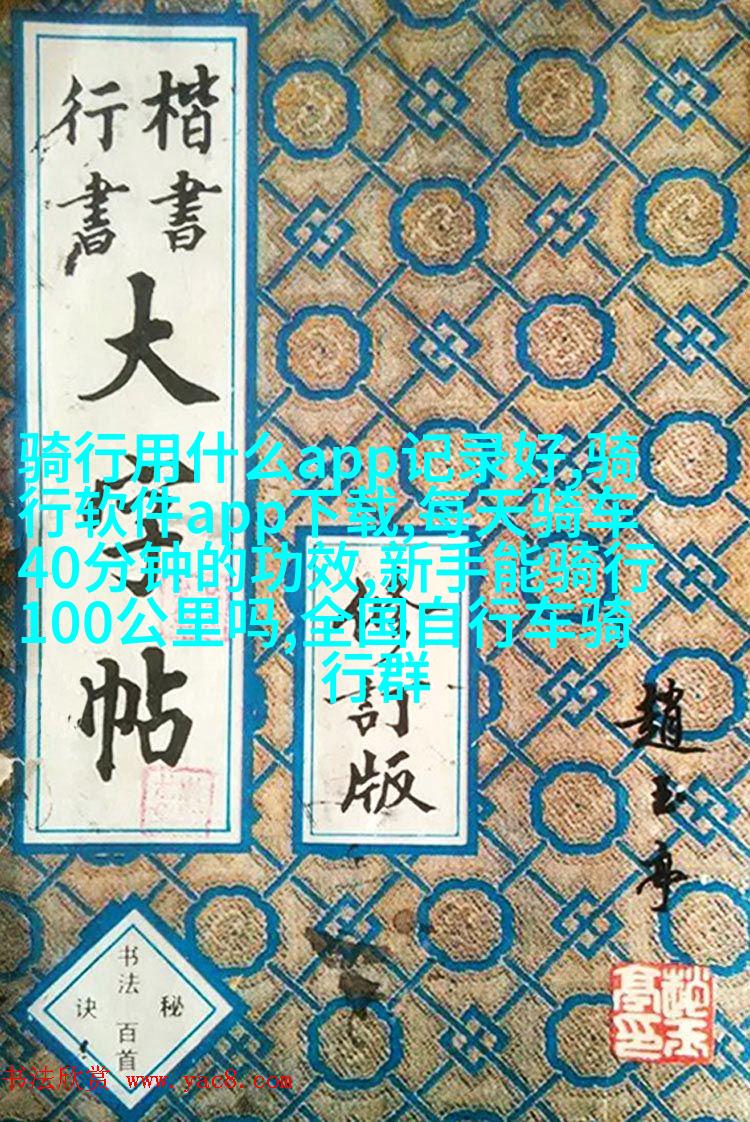 楷書
行書
大字帖
骑行用什么app记录好,骑
行软件app下载,每天骑车
40分钟的功效,新手能骑行
100公里吗,全国自行车骑
行群
修訂版
趙玉亭
书法百首
秘诀
书法欣赏 www.yac8.com